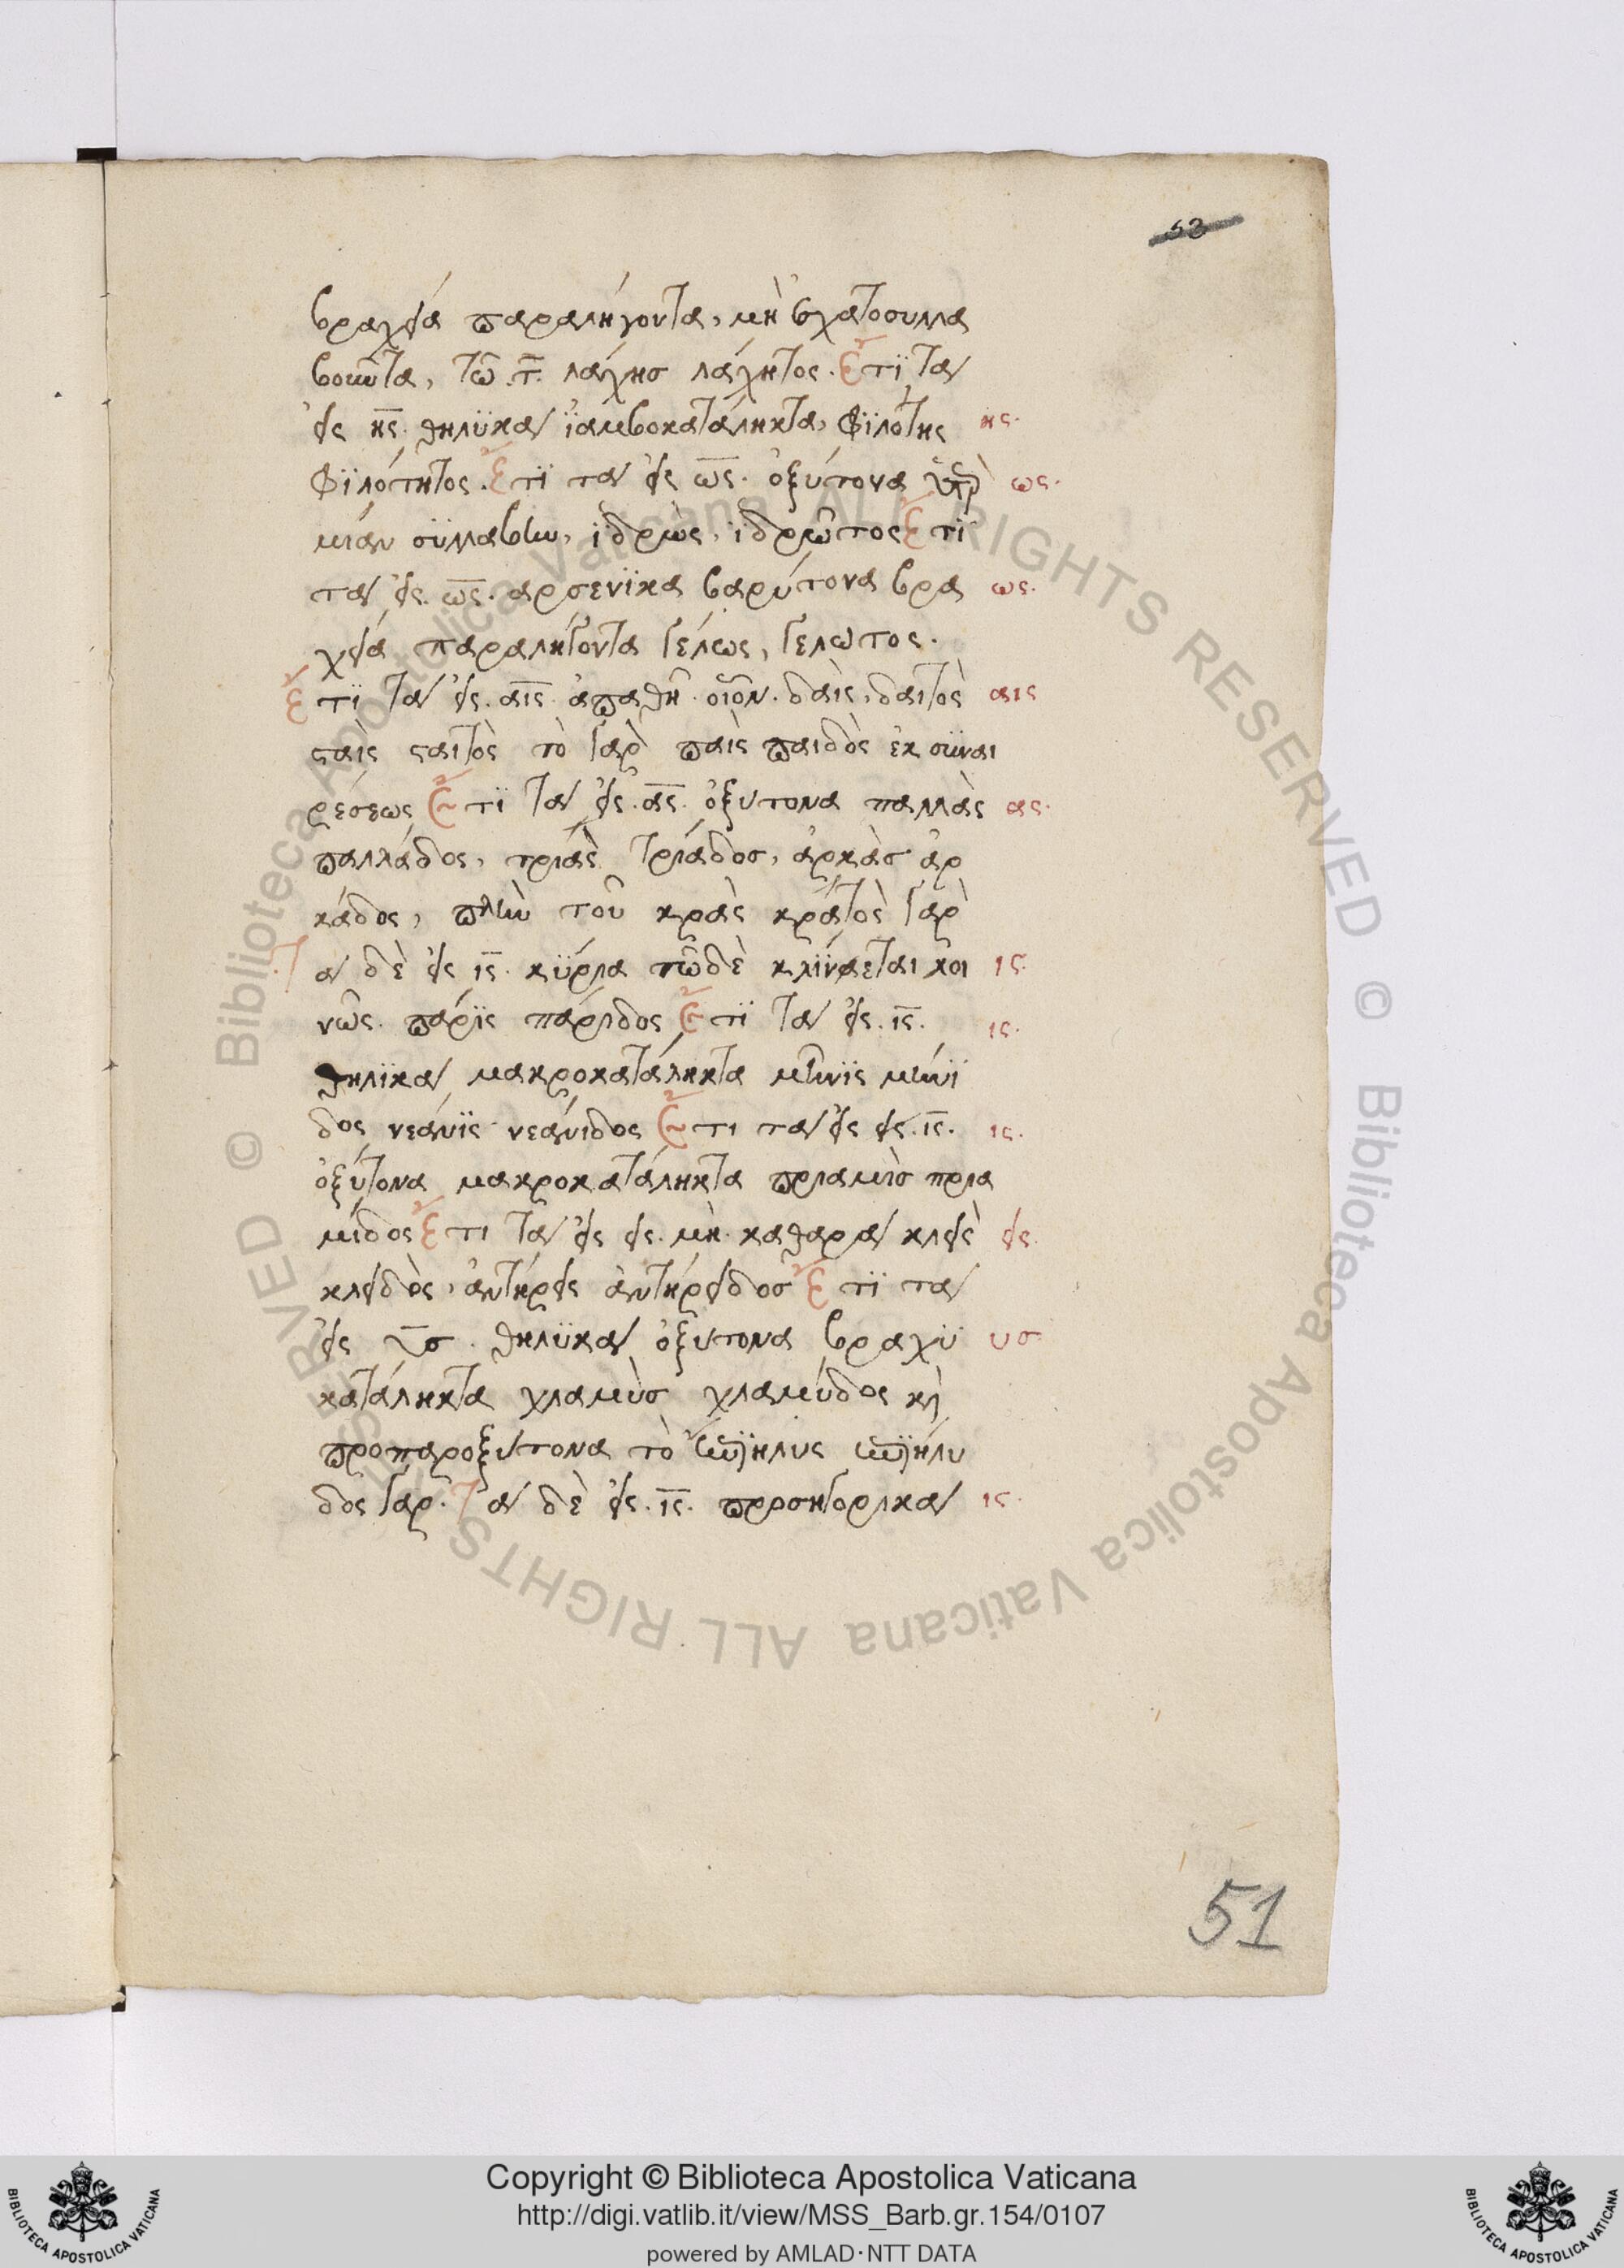 52
βραχεία παραλήγοντα, μὴ ἑκατοσυλλα
βοῦντα, τῶ .τ. λάχησ λάχητος. Ἔτϊ τὰ
εἰς ης. θηλϋκὰ ϊαμβοκατάληκτα, φϊλότης ης.
φϊλότητος. Ἔτϊ τὰ εἰς ως. ὀξύτονα ὑπὲρ ως.
μίαν σϋλλαβην, ϊδρὼς, ϊδρῶτος Ἔτϊ
τὰ εἰς. ως. αρσενϊκα βαρύτονα βρα ως.
χεία παραλήγοντα γέλως, γελωτος.
Ἔτϊ τὰ εἰς. αις. ἀπαθῆ. οἷον. δαὶς, δαιτὸς αις
σταὶς σταιτὸς τὸ γὰρ παὶς παιδὸς ἐκ σϋναι
ρέσεως Ἔτϊ τὰ εἰς. ας. ὀξυτονα παλλὰς ας.
παλλάδος, τριὰς τριάδοσ, ἀρκὰσ ἀρ
κάδος, πλὴν τοῦ κρὰς κρατὸς γὰρ
Τὰ δὲ εἰς ις. κϋρια τῶδὲ κλϊνεται κοι ις.
νῶς. πάρϊς πάριδος Ἔτϊ τὰ εἰς. ις. ις.
θηλϊκὰ μακροκατάληκτα μῆνϊς μήνϊ
δος νεάνϊς νεάνιδος Ἔτι τὰ εἰς εις. ις. ις.
ὀξύτονα μακροκατάληκτα πριαμὶσ πρια
μίδος Ἔτι τὰ εἰς εις. μὴ. καθαρὰ κλεὶς εις.
κλειδὸς, ἀντήρεις ἀντήρειδοσ Ἔτϊ τὰ
εἰς υσ. θηλϋκὰ ὀξυτονα βραχϋ υσ
κατάληκτα χλαμὺσ χλαμύδος κὴ
προπαροξυτονα τὸ ἔπηλυς ἐπήλυ
δος γὰρ. Τὰ δὲ εἰς. ις. προσηγορικὰ ις.
51
Copyright © Biblioteca Apostolica Vaticana
http://digi.vatlib.it/view/MSS_Barb.gr.154/0107
powered by AMLAD·NTT DATA
BIBLIOTECA APOSTOLICA VATICANA
BIBLIOTECA APOSTOLICA VATICANA
© Biblioteca Apostolica Vaticana ALL RIGHTS RESERVED © Biblioteca Apostolica Vaticana ALL RIGHTS RESERVED